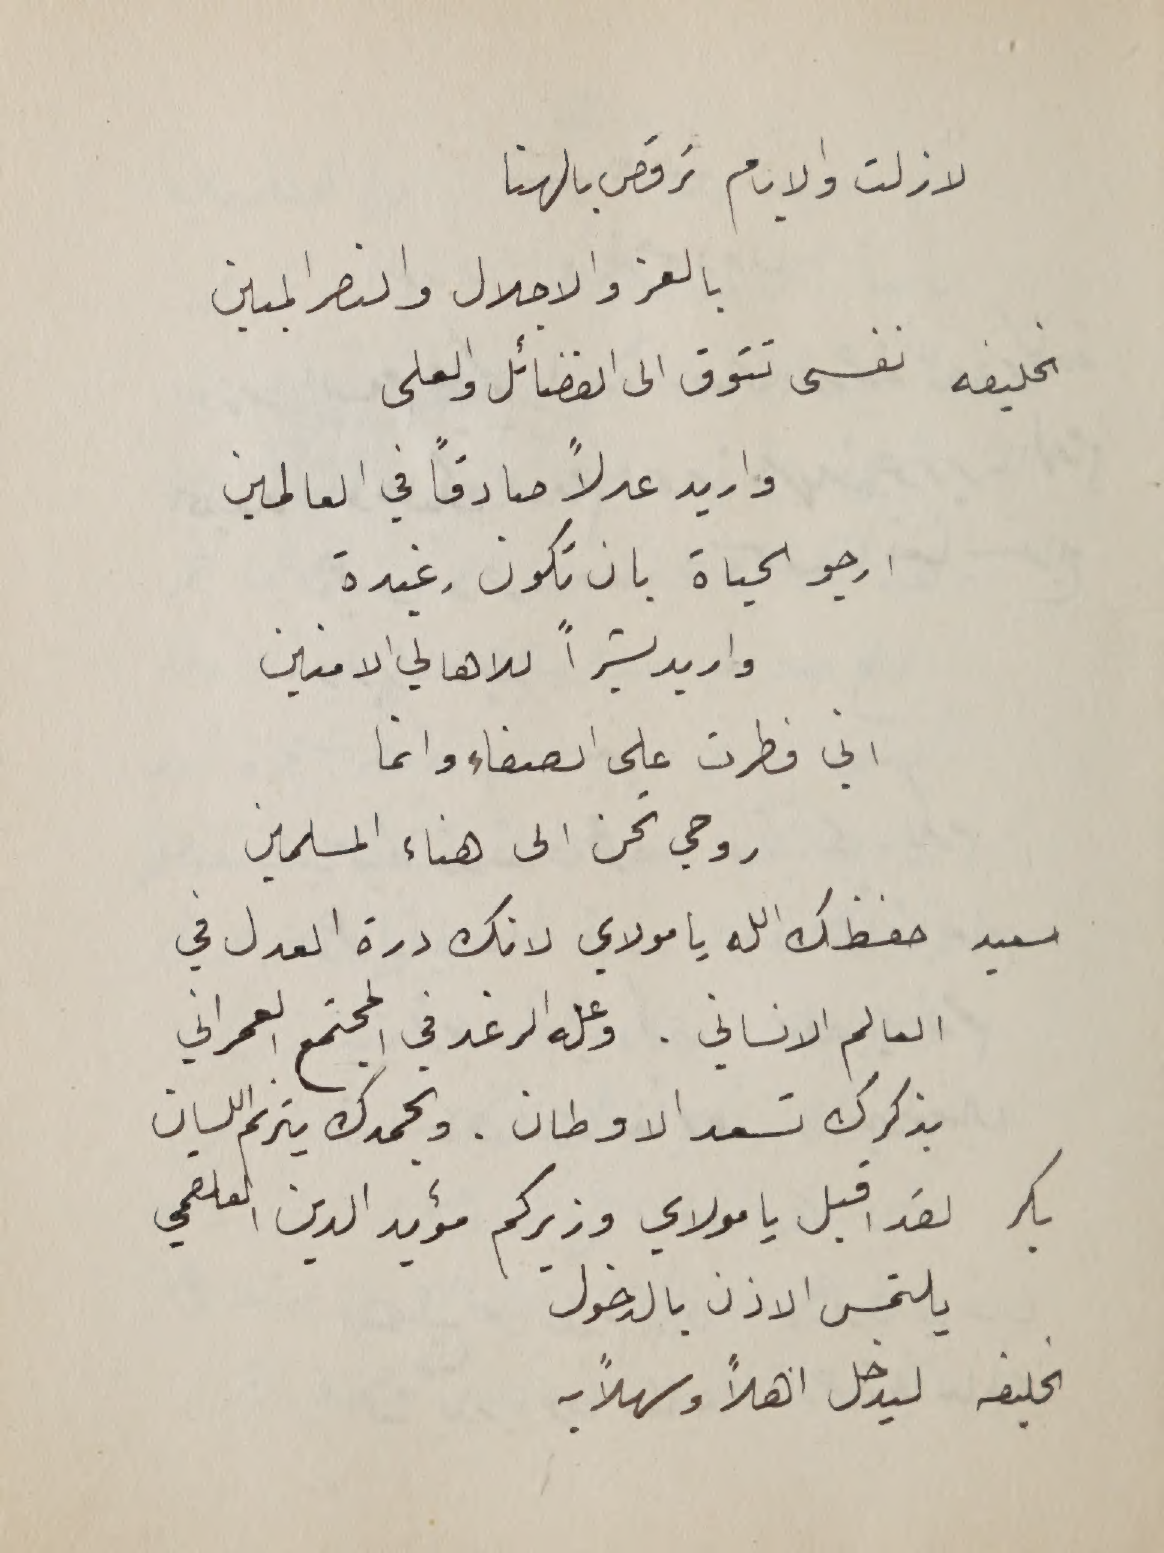 لازلت والايام ترقص بالهنا
بالعز والاجلال والنصر المبين
الخليفه نفسى تتوق الى الفضائل والعلى
واريد عدلاً صادقاً في العالمين
ارجو الحياة بان تكون رغيدة
واريد بشراً للاهالي الامنين
اني فطرت على الصفاء وانما
روحي تحن الى هناء المسلمين
سعيد حفظك الله يا مولاي لانك درة العدل في
العالم الانساني . وعلة الرغد في المجتمع العمراني
بذكرك تسعد الاوطان . وبحمدك يترنم اللسان
بكر لقد اقبل يا مولاي وزيركم مؤيد الدين العلقمي
يلتمس الاذن بالدخول
الخليفه ليدخل اهلاً وسهلاً به